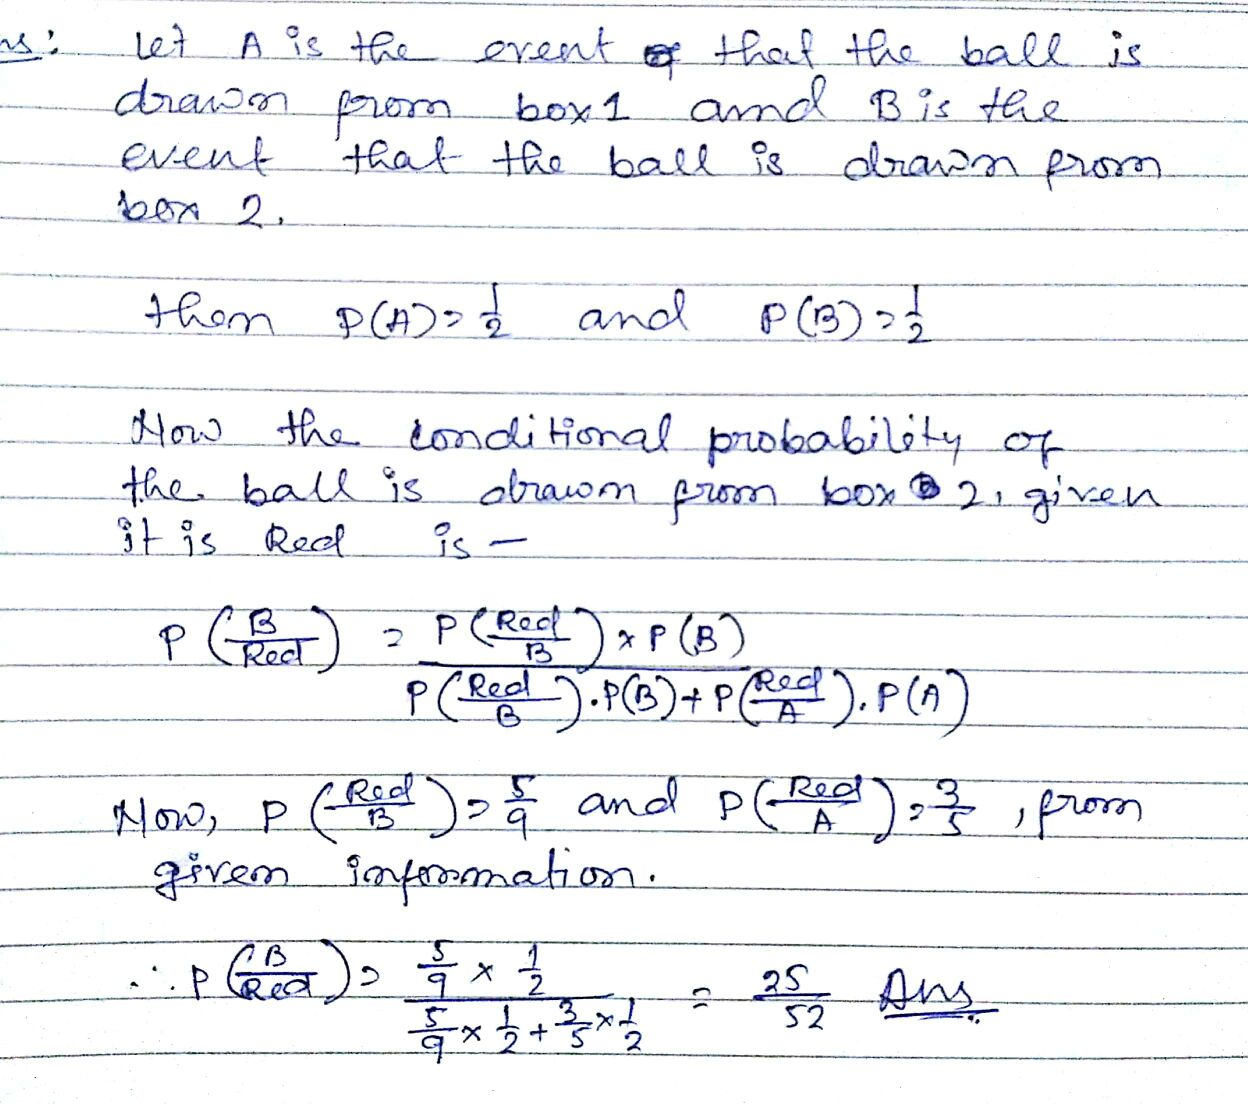 ns: Let A is the event that the ball is
drawn from box 1 and B is the
event that the ball is drawn from
box 2.
then P(A) = 1/2 and P(B) = 1/2
Now the conditional probability of
the ball is drawn from box 2, given
it is Red is –
P(B/Red) = P(Red/B) × P(B) / P(Red/B).P(B) + P(Red/A).P(A)
Now, P(Red/B) = 5/9 and P(Red/A) = 3/5, from
given information.
∴ P(B/Red) = 5/9 × 1/2 / 5/9 × 1/2 + 3/5 × 1/2 = 25/52 Ans.